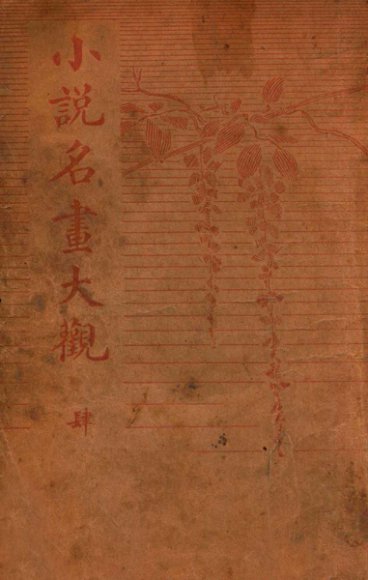 小説名畫大觀
肆